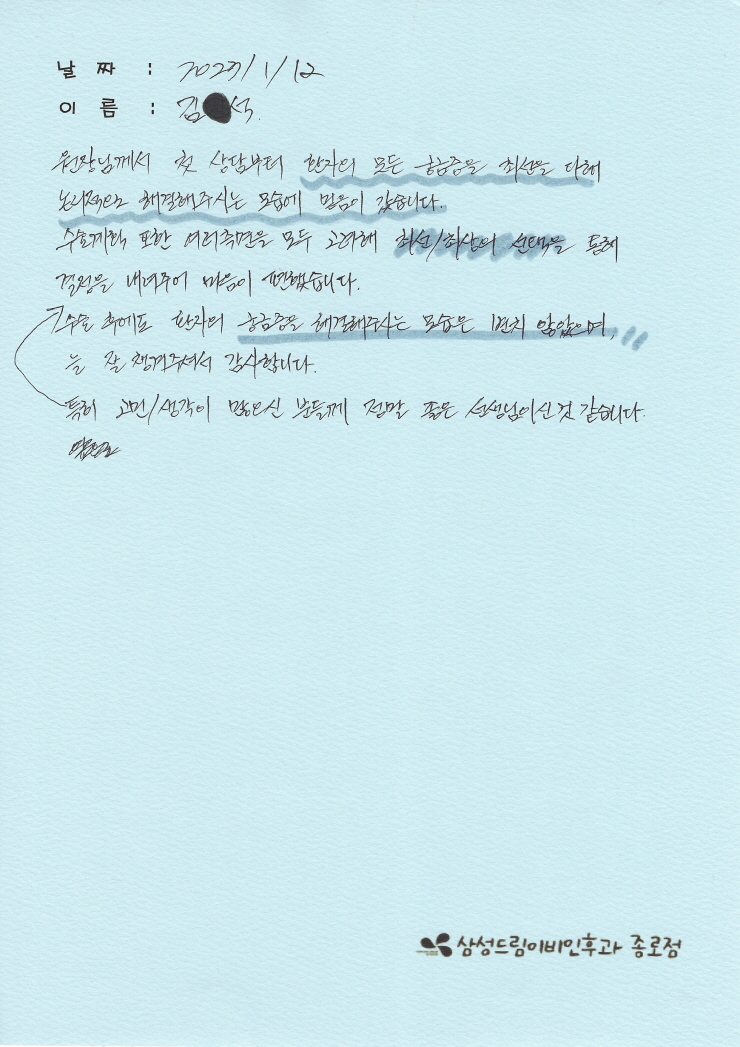 날 짜 : 2023/1/12
이 름 : 김 석.
원장님께서 첫 상담부터 환자의 모든 궁금증을 최선을 다해
논리적으로 해결해주시는 모습에 믿음이 갔습니다.
수술계획 또한 여러측면을 모두 고려해 최선/최상의 선택을 통해
결정을 내려주어 마음이 편했습니다.
수술 후에도 환자의 궁금증을 해결해주시는 모습은 변치 않았으며,
늘 잘 챙겨주셔서 감사합니다.
특히 고민/생각이 많으신 분들께 정말 좋은 선생님이신 것 같습니다.
삼성드림이비인후과 종로점